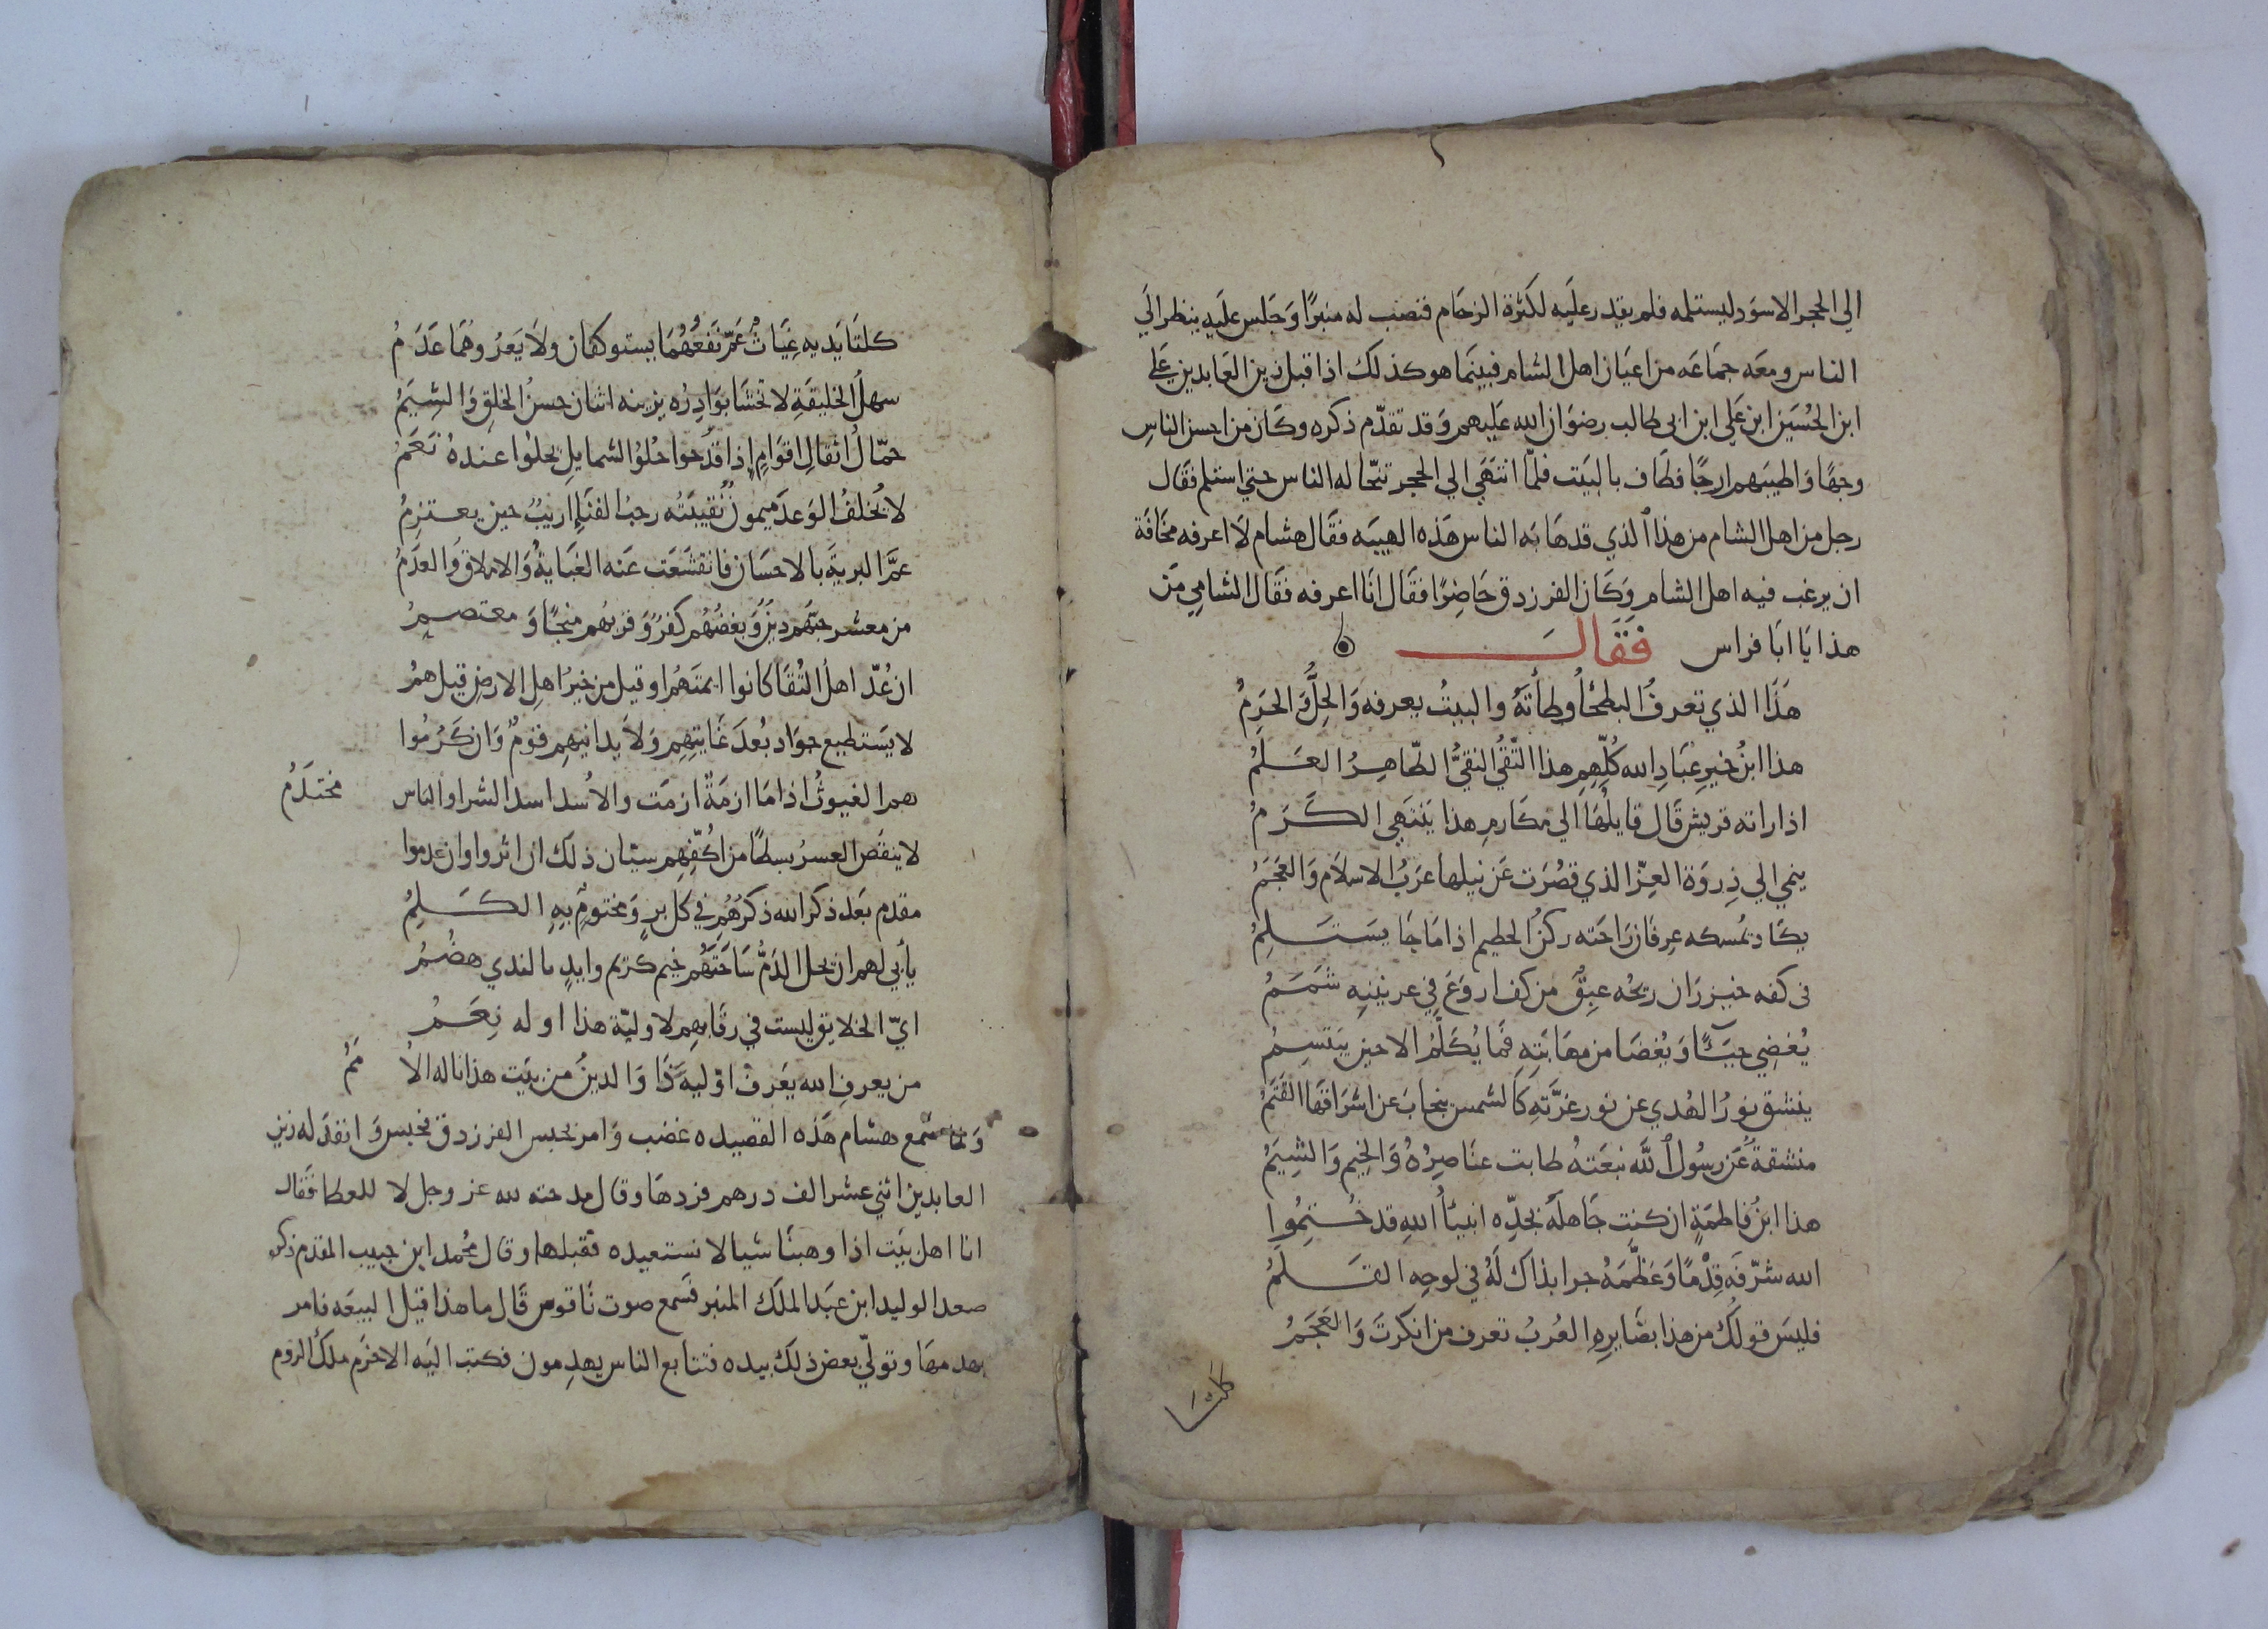 الي الحجر الاسود ليستلمه فلم يقدر عليه لكثرة الزحام فنصب له منبرًا وَجَلس عليه ينظر الَي
الناس ومعَه جمَاعَه من اعيَان اهل الشام فبينَما هو كذلك اذا قبل زين العَابدين عَلي
ابن الحُسَين ابن عَلي ابن ابى طالب رضوَان الله عَليهم وَقد تقدّم ذكره وكَان من احسن الناسِ
وجهًا وَاطيبَهم ارجًا فطَاف بالبَيت فلمّا انتهَي الي الحجر تنحّا له الناس حتي استلم فقَال
رجل من اهل الشام من هذا الذي قد هَابَه الناس هَذه الهيبَه فقَال هشام لَا اعرفه مخَافَة
ان يرغب فيه اهل الشام وَكَان الفرزدق حَاضِرًا فقَال انَا اعرفه فقَال الشامِي مَن
هذا يَا ابَا فراس فَقَالَ
هَذَا الذي تعرفُ البطحَاُ وطأتَهُ والبيتُ يعرفه وَالحِلُّ وَالحَرَمُ
هذا ابنُ خيرِ عبَادِ الله كُلّهِمِ هذا التّقيُّ النقيُّ الطّاهِرُ العَلَمُ
اذا راته قريش قَال قايلُهَا الي مكَارمِ هذا يَنتَهي الكَرَمُ
ينمي الي ذِروَة العِزّ الذي قصُرَت عَن نيلها عرَبُ الاسلَام وَالعَجَمُ
يكَاد يمُسكه عِرفَان رَاحَته ركنُ الحطيم اذا مَا جَا يسَتَلِمُ
فى كفه خيزرَان ريحُه عبِقٌ من كف اروَعَ فِي عرنينِهِ شَمَمُ
يُغضِي حيَآءً وَيُغضَا من مهَابَتِهِ فَما يُكَلَّمُ الا حين يَبتَسِمُ
ينشق نورُ الهُدي عن نور غرّتهِ كَالشمس ينجَابَ عن اشرَاقهَا القَتَمُ
منشقةٌ عَن رسُول الله نبعَتهُ طابت عنَاصِرُهُ وَالخِيم وَالشِيَمُ
هذا ابنُ فاطمَةٍ ان كنتِ جَاهلَهُ بجَدِّه انبيَاُ اللهِ قد خُتِمُوا
الله شرّفَه قِدْمًا وَعَظّمَهُ جرا بذاك لَهُ في لوحِهِ القَلَمُ
فليسَ قولُك من هذا بضَايرِهِ العُربُ تعرف من انكرتَ وَالعَجَمُ
كلتا
كلتَا يَديهِ غِيَاثٌ عَمّ نَفعُهُمَا يستوكفَان ولَا يَعرُوهُمَا عَدَمُ
سهلُ الخليقَةِ لا تخشَا بوَادِرُه يزينه اثنان حسنُ الخلقِ وَالشِيَمُ
حمّالُ اثقالِ اقوَامٍ إِذا قدحوا حُلوُ الشمايلِ يحلُوا عندهُ نَعَمُ
لا يُخلفُ الوَعدَ ميمونٌ نُقيبَتُه رحبُ الفنَاءِ اريبٌ حين يعتزِمُ
عَمَّ البريةَ بالاحسَان فانقشَعَت عَنه الغَيَايةُ وَالاملاق وَالعدَمُ
من معشر حبّهُم دينٌ وَبغضُهُم كفرٌ وَقربُهم منجًا وَمعتصِمُ
ان عُدّ اهلُ التُقَا كَانوا ايمتَهُم اوقيل من خيرُ اهلِ الارضِ قيل همُ
لا يسَتطيع جوَاد بُعدَ غَايتِهِم وَلَا يدانيهِم قومٌ وَان كَرُمُوا
هم الغيوثُ اذا مَا ازمَةٌ ازمَت والاُسد اسد الشرا والباس محتَدَمُ
لا ينقصُ العسرُ بسطًا من اكُفِّهِم سيّان ذلك ان اثروا وان عدموا
مقدم بعَد ذكر الله ذكرُهُم في كل برٍ وَمختومٌ بِهِ الكَلِمُ
يأبي لهم ان يحل الذمُّ سَاحَتَهُم خيم كريم وايدٍ بالندي هضُمُ
ايّ الخلايق ليست في رقَابهِم لاوليّة هذا اوله نِعَمُ
من يعرفِ الله يعَرفْ اوّليهَ ذَا وَالدينُ من بيَت هذا ناله الاُمَمُ
وَلما سمع هشام هَذه القصيده غضب وَامر بحبس الفرزدق فحبسَ وَانفذ له زين
العابدين اثني عشر الف درهم فردهَا وقال مدحته لله عز وجل لا للعطا فقَال
انا اهل بيَت اذا وهبنَا شيا لا نستعيده فقبلها وقال محمد ابن حبيب المقدم ذكره
صعد الوليد ابن عبَد الملَك المنبر فسَمع صوت نَاقوس قَال ما هذا قيل البيعَه فامر
بهدمهَا وتولّي بعض ذلك بيده فتتابع الناس يهدِمون فكتب اليَه الاخرَم ملكُ الروم